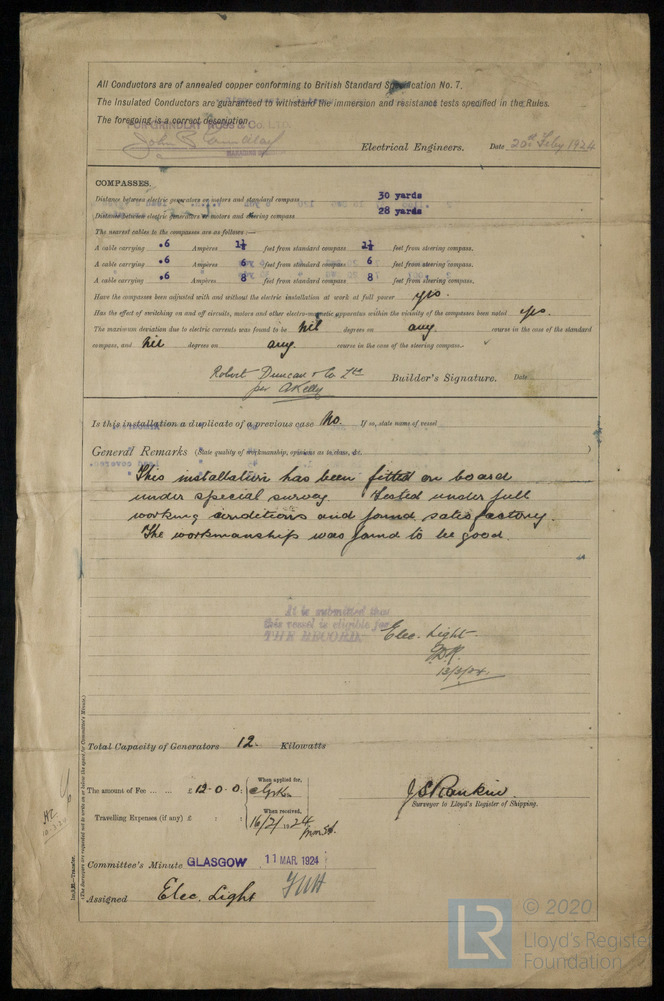 All Conductors are of annealed copper conforming to British Standard Specification No. 7.
The Insulated Conductors are guaranteed to withstand the immersion and resistance tests specified in the Rules.
The foregoing is a correct description,
FOR GRINDLAY ROSS & Co. LTD.
John C Grindlay Electrical Engineers. Date 20th Feby 1924
COMPASSES.
Distance between electric generators or motors and standard compass 30 yards
Distance between electric generators or motors and steering compass 28 yards
The nearest cables to the compasses are as follows :—
A cable carrying .6 Ampères feet from standard compass feet from steering compass.
A cable carrying .6 Ampères 6 feet from standard compass 6 feet from steering compass.
A cable carrying .6 Ampères 8 feet from standard compass 8 feet from steering compass.
Have the compasses been adjusted with and without the electric installation at work at full power yes.
Has the effect of switching on and off circuits, motors and other electro-magnetic apparatus within the vicinity of the compasses been noted yes.
The maximum deviation due to electric currents was found to be nil degrees on any course in the case of the standard
compass, and nil degrees on any course in the case of the steering compass.
Robert Duncan & Co. Ltd
per AKelly Builder's Signature. Date
Is this installation a duplicate of a previous case No. If so, state name of vessel
General Remarks (State quality of workmanship, opinions as to class, &c.
This installation has been fitted on board
under special survey Tested under full
working conditions and found satisfactory.
The workmanship was found to be good.
It is submitted that
this vessel is eligible for
THE RECORD. Elec. Light
13/3/24
Total Capacity of Generators 12. Kilowatts
The amount of Fee ... ... £ 12.0.0. When applied for,
When received,
Travelling Expenses (if any) £ : : 16/2/ 24
J S Rankin.
Surveyor to Lloyd's Register of Shipping.
Committee's Minute GLASGOW 11 MAR. 1924
Assigned Elec. Light
(The Surveyors are requested not to write on or below the space for Committee's Minute.)
LR © 2020
Lloyd's Register
Foundation